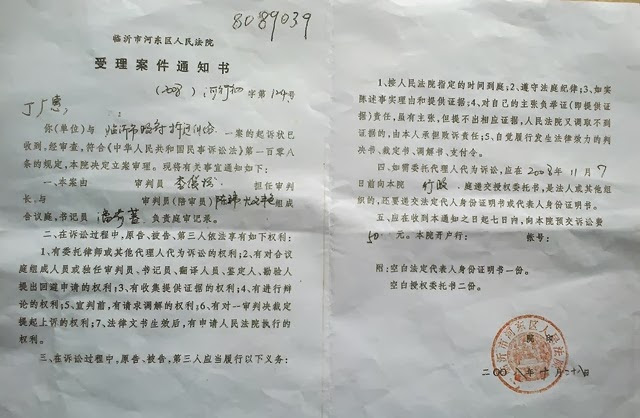 8089039
临沂市河东区人民法院
受理案件通知书
(2008)河行初字第124号
丁广惠:
你(单位)与临沂市政府一案的起诉状已
收到,经审查,符合《中华人民共和国民事诉讼法》第一百零八
条的规定,本院决定立案审理。现将有关事宜通知如下:
一、本案由 审判员 担任审判
长、与 审判员(陪审员) 组成
合议庭,书记员 负责庭审记录。
二、在诉讼过程中,原告、被告、第三人依法享有如下权利:
1、有委托律师或其他代理人代为诉讼的权利;2、有对合议
庭组成人员或独任审判员、书记员、翻译人员、鉴定人、勘验人
提出回避申请的权利;3、有收集提供证据的权利;4、有进行辩
论的权利;5、宣判前,有请求调解的权利;6、有对一审判决裁定
提起上诉的权利;7、法律文书生效后,有申请人民法院执行的
权利。
三、在诉讼过程中,原告、被告,第三人应当履行以下义务:
1、按人民法院指定的时间到庭;2、遵守法庭纪律;3、如实
陈述事实理由和提供证据;4、对自己的主张负举证(即提供证
据)责任,虽有主张,但提不出相应证据,人民法院又调取不到
证据的,由本人承担败诉责任;5、自觉履行发生法律效力的判
决书、裁定书、调解书、支付令。
四、如需委托代理人代为诉讼,应在2008年11月7
日前向本院行政庭递交授权委托书,是法人或其他组
织的,还要递交法定代表人身份证明书或代表人身份证明书。
五、应在收到本通知之日起七日内,向本院预交诉讼费
50元。本院开户行: 帐号:
附:空白法定代表人身份证明书一份。
空白授权委托书二份。
院 印
临沂市河东区人民法院
二〇〇八年十月二十八日